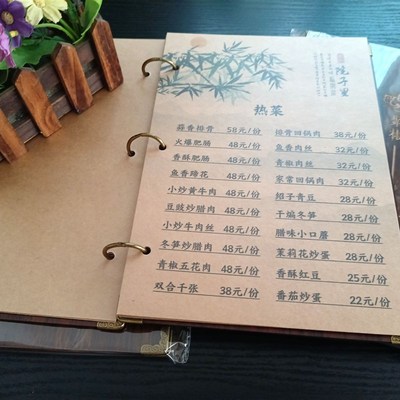 院子里
热菜
蒜香排骨 58元/份
火爆肥肠 48元/份
香酥肥肠 48元/份
鱼香蹄花 48元/份
小炒黄牛肉 48元/份
豆豉炒腊肉 48元/份
小炒牛肉丝 48元/份
冬笋炒腊肉 48元/份
青椒五花肉 48元/份
双合千张 38元/份
排骨回锅肉 38元/份
鱼香肉丝 32元/份
青椒肉丝 32元/份
家常回锅肉 32元/份
绍子青豆 28元/份
干煸冬笋 28元/份
腊味小口蘑 28元/份
茉莉花炒蛋 28元/份
香酥红豆 25元/份
番茄炒蛋 22元/份